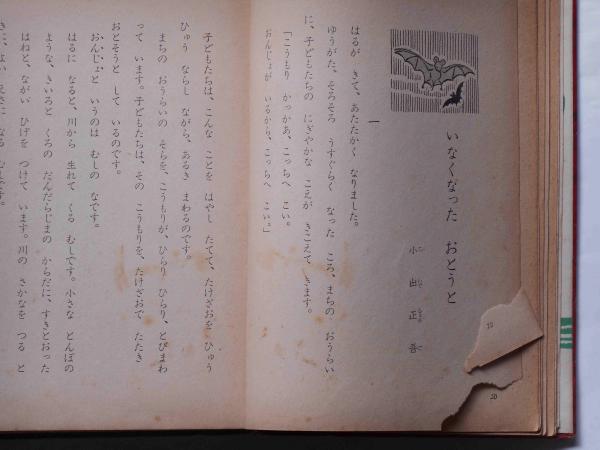 いなくなった おとうと
小出正吾
こいでしょうご
一
はるが きて、あたたかく なりました。
ゆうがた、そろそろ うすぐらく なった ころ、まちの おうらい
に、子どもたちの にぎやかな こえが きこえて きます。
「こうもり かっかあ、こっちへ こい。
おんじょが いるから、こっちへ こい。」
子どもたちは、こんな ことを はやし たてて、たけざおを ひゅう
ひゅう ならし ながら、あるき まわるのです。
まちの おうらいの そらを、こうもりが、ひらり ひらり、とびまわ
って います。子どもたちは、その こうもりを、たけざおで たたき
おとそうと して いるのです。
おんじょと いうのは むしの なです。
はるに なると、川から 生れて くる むしです。小さな とんぼの
ような、きいろと くろの だんだらじまの からだに、すきとおった
はねと、ながい ひげを つけて います。川の さかなを つる と
20